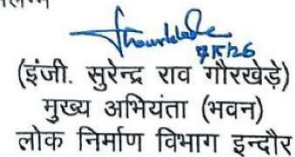 (इंजी. सुरेन्द्र राव गौरखेड़े)
मुख्य अभियंता (भवन)
लोक निर्माण विभाग इन्दौर